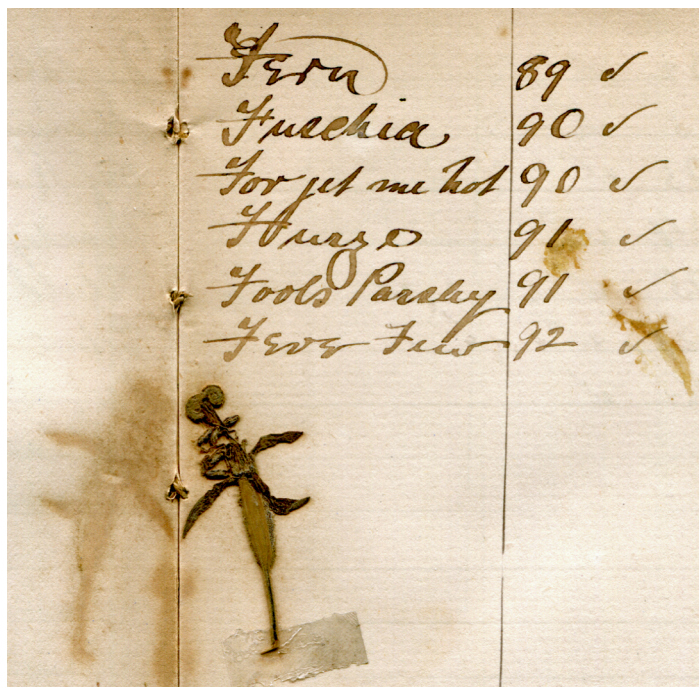 Fern 89 ✓
Fuschia 90 ✓
For get me not 90 ✓
Furze 91 ✓
Fools Parsley 91 ✓
Fever Few 92 ✓